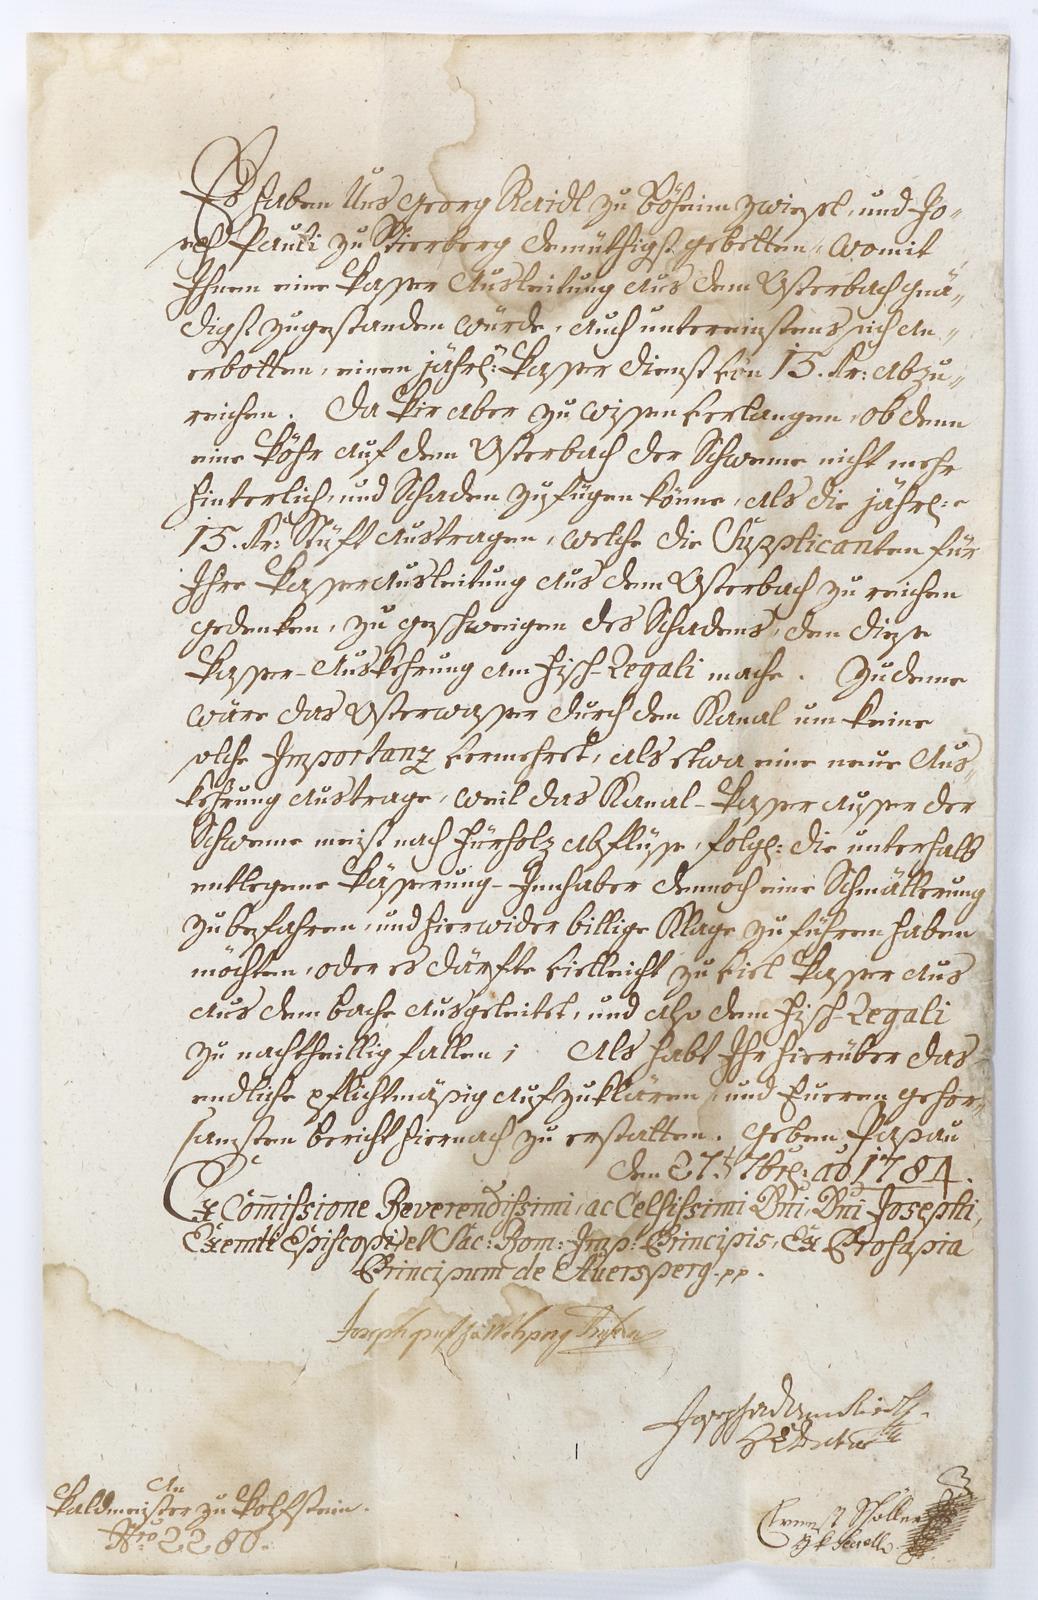 Es haben Uns Georg Raidl zu Böheimzwisel, und Jo-
seph Pauli zu Bierberg demüthigst gebetten, womit
Ihnen eine Wasser Ausleitung aus dem Osterbach gnä-
digst zugestanden würde, auch untereinstens sich an-
erbotten, einen jährl: Wasser Dienst von 15. Kr: abzu-
reichen. Da Wir aber zu wissen verlangen, ob denn
eine Wöhr auf dem Osterbach der Schwemme nicht mehr
hinterlich, und Schaden zufügen könne, als die jährl:e
15. Kr: Stüft austragen, welche die Supplicanten für
Ihre Wasserausleitung aus dem Osterbach zu reichen
gedenken, zu geschweigen des Schadens, den diese
Wasser-Auskehrung am Fisch-Regali mache. Zudeme
wäre das Osterwasser durch den Kanal um keine
solche Importanz vermehret, als etwa eine neue Aus-
kehrung austrage, weil das Kanal-Wasser ausser der
Schwemme meist nach Fürholz abflüsse, folgl: die unterhalb
entlegene Wässerung-Innhaber dennoch eine Schmällerung
zu befahren, und hierwider billige Klage zu führen haben
möchten, oder es därfte vielleicht zu viel Wasser aus
aus dem bache ausgeleitet, und also dem Fisch-Regali
zu nachtheillig fallen; Als habt Ihr hierüber das
endliche pflichtmäßig aufzuklären, und Eueren gehor-
samsten bericht hiernach zu erstatten. Geben Passau
den 27.t 7brl: ao 1784.
Ex Commissione Reverendissimi, ac Celsissimi Dni, Dni Josephi,
Exemti Episcopi, et Sac: Rom: Imp: Principis, Ex Prosapia
Principum de Auersperg. pp.
Joseph
Joseph Adam
An
Waldmeister zu Wolfstein.
Nro 2280.
Ernest